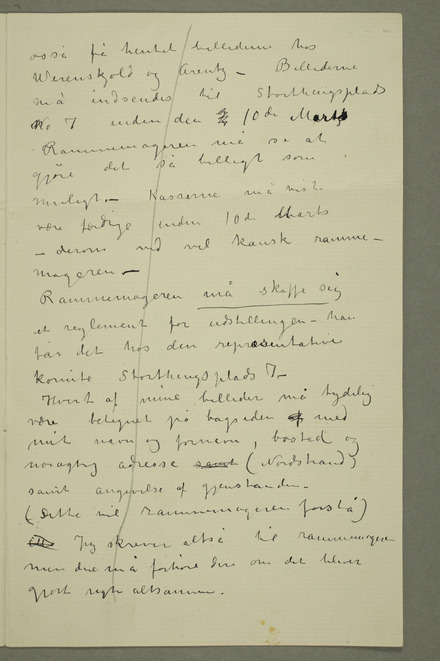 også få hentet billederne hos
Werenskold og Arentz – Billederne
må indsendes til Storthingsplads
No 7 inden den 10de Marts
Rammemageren må se at
gjöre det så billigt som
muligt. – Kasserne må
være færdige inden 10de Marts
– derom ved vel kansk ramme–
mageren –
Rammemageren må skaffe sig
et reglement for udstillingen – han
får det hos den representative
komite Storthingsplads 7. –
Hvert af mine billeder må tydelig
være betegnet på bagsiden af med
mit navn og fornavn, bosted og
nöiagtig adresse samt (Nordstrand)
samt angivelse af gjenstanden. –
(Dette vil rammemageren forstå)
Jeg skriver altså til rammemageren
men du må forhöre dig om det bliver
gjort altsammen.